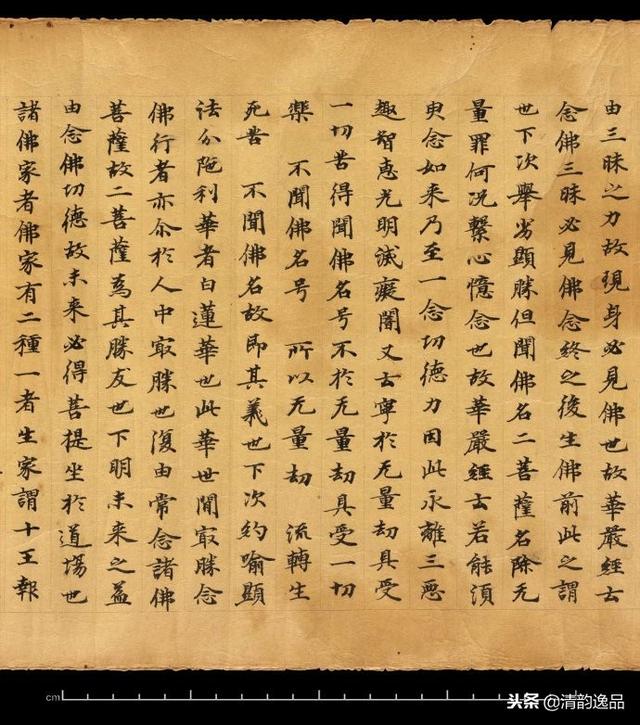 由三昧之力故現身必見佛也故華嚴經云
念佛三昧必見佛念終之後生佛前此之謂
也下次舉劣顯勝但聞佛名二菩薩名除无
量罪何況繫心憶念也故華嚴經云若能須
臾念如来乃至一念切德力因此永離三惡
趣智恵光明滅癡闇又云寧於无量劫具受
一切苦得聞佛名号不於无量劫具受一切
樂 不聞佛名号 所以无量劫 流轉生
死苦 不聞佛名故即其義也下次約喻顯
法分陁利華者白蓮華也此華世間冣勝念
佛行者亦尒於人中冣勝也復由常念諸佛
菩薩故二菩薩為其勝友也下明未来之益
由念佛切德故未来必得菩提坐於道場也
諸佛家者佛家有二種一者生家謂十王報
cm
头条@清韵逸品